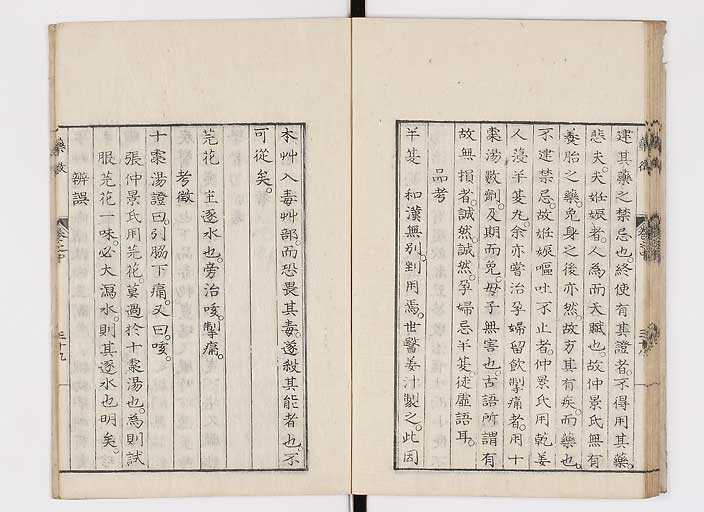 建其藥之禁忌也。終使有其證者。不得用其藥。
悲夫。夫妊娠者。人為而天賦也。故仲景氏無有
養胎之藥。免身之後亦然。故方其有疾。而藥也。
不建禁忌。故妊娠嘔吐不止者。仲景氏用乾姜
人蔆半夏丸。余亦嘗治孕婦留飲掣痛者。用十
棗湯數劑。及期而免。母子無害也。古語所謂有
故無損者。誠然。誠然。孕婦忌半夏。徒虛語耳。
品考
半夏 和漢無別。剉用焉。世醫姜汁製之。此因
藥徵
卷之中
三十九
本艸入毒艸部。而恐畏其毒。遂殺其能者也。不
可從矣。
芫花 主逐水也。旁治咳。掣痛。
考徵
十棗湯證曰。引脇下痛。又曰。咳。
張仲景氏用芫花。莫過於十棗湯也。為則試
服芫花一味。必大瀉水。則其逐水也明矣。
辨誤